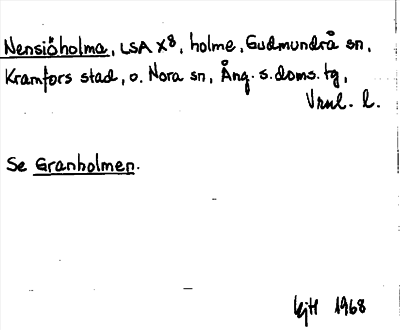 Nensiöholma, LSA X8, holme, Gudmundrå sn,
Kramfors stad, o. Nora sn, Ång. s. doms. tg,
Vnnl. l.
Se Granholmen.
KjH 1968